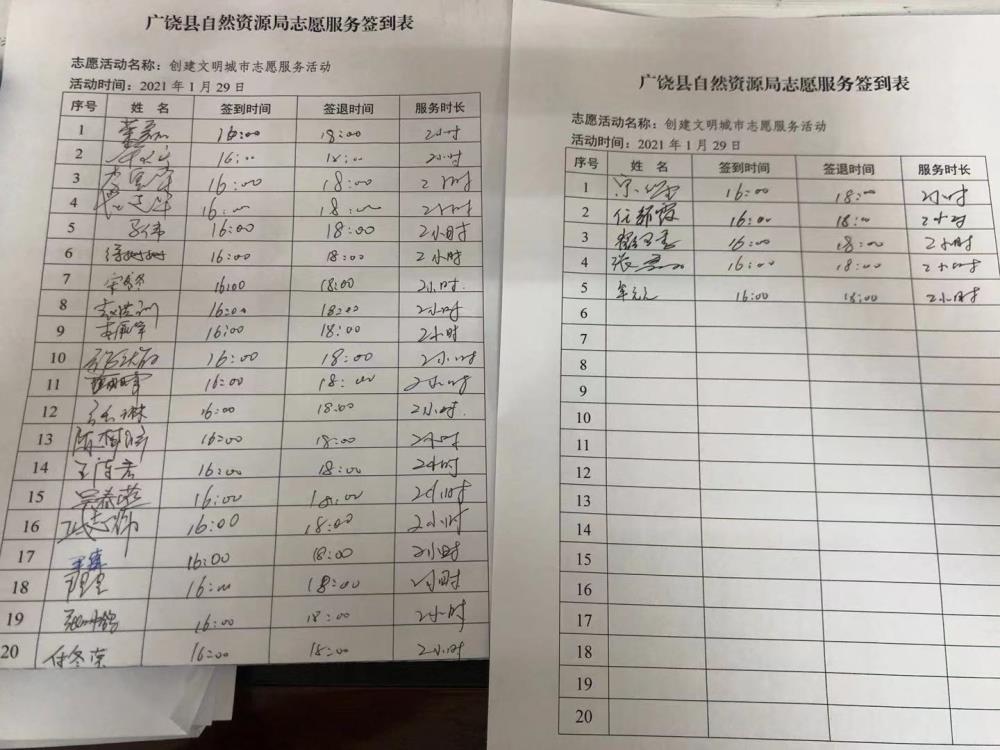 广饶县自然资源局志愿服务签到表
志愿活动名称：创建文明城市志愿服务活动
活动时间：2021 年 1 月 29 日
序号 姓 名 签到时间 签退时间 服务时长
1 16:00 18:00 2小时
2 16:00 18:00 2小时
3 16:00 18:00 2小时
4 16:00 18:00 2小时
5 16:00 18:00 2小时
6 16:00 18:00 2小时
7 16:00 18:00 2小时.
8 16:00 18:00 2小时
9 16:00 18:00 2小时
10 16:00 18:00 2小时
11 16:00 18:00 2小时
12 16:00 18:00 2小时.
13 16:00 18:00 2小时
14 16:00 18:00 2小时
15 16:00 18:00 2小时
16 16:00 18:00 2小时
17 16:00 18:00 2小时
18 16:00 18:00 2小时
19 16:00 18:00 2小时
20 任冬荣 16:00 18:00 2小时
广饶县自然资源局志愿服务签到表
志愿活动名称：创建文明城市志愿服务活动
活动时间：2021 年 1 月 29 日
序号 姓 名 签到时间 签退时间 服务时长
1 16:00 18:00 2小时
2 任丽霞 16:00 18:00 2小时
3 16:00 18:00 2小时
4 16:00 18:00 2小时
5 16:00 18:00 2小时
6
7
8
9
10
11
12
13
14
15
16
17
18
19
20